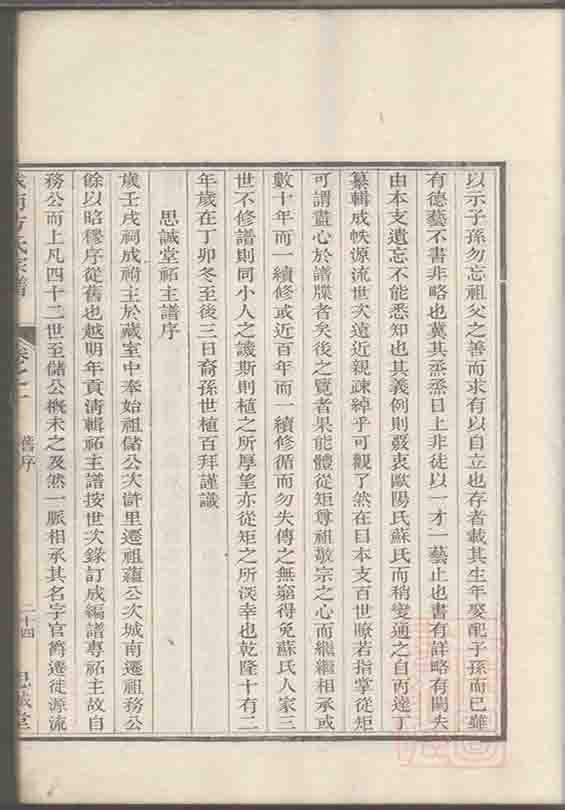 以示子孫勿忘祖父之善而求有以自立也存者載其生年娶配子孫而已雖
有德藝不書非略也冀其烝烝日上非徒以一才一藝止也書有詳略有闕失
由本支遺忘不能悉知也其義例則裒歐陽氏蘇氏而稍變通之自丙逹丁
纂輯成帙源流世次遠近親疎綽乎可觀了然在目本支百世瞭若指掌從矩
可謂盡心於譜牒者矣後之覽者果能體從矩尊祖敬宗之心而繼繼相承或
數十年而一續修或近百年而一續修循而勿失傳之無窮得免蘇氏人家三
世不修譜則同小人之譏斯則植之所厚望亦從矩之所深幸也乾隆十有二
年歲在丁卯冬至後三日裔孫世植百拜謹識
思誠堂祏主譜序
歲壬戌祠成祔主於藏室中奉始祖儲公次滸里遷祖蘊公次城南遷祖務公
餘以昭穆序從舊也越明年貢淸輯祏主譜按世次錄訂成編譜專祏主故自
務公而上凡四十二世至儲公槪未之及然一脈相承其名字官爵遷徙源流
城南方氏宗譜
卷之一
舊序
二十四
思誠堂